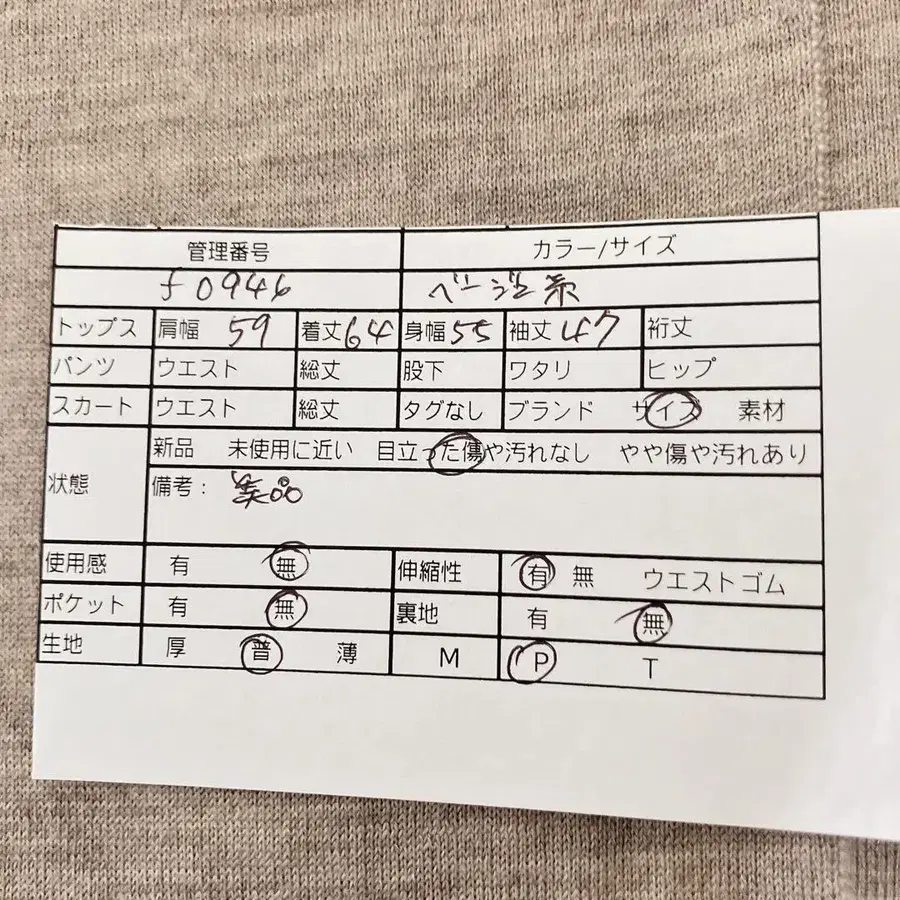 管理番号 カラー/サイズ
f0946 ベージュ系
トップス 肩幅 59 着丈 64 身幅 55 袖丈 47 裄丈
パンツ ウエスト 総丈 股下 ワタリ ヒップ
スカート ウエスト 総丈 タグなし ブランド サイズ 素材
状態 新品 未使用に近い 目立った傷や汚れなし やや傷や汚れあり
備考: 美品
使用感 有 無 伸縮性 有 無 ウエストゴム
ポケット 有 無 裏地 有 無
生地 厚 普 薄 M P T